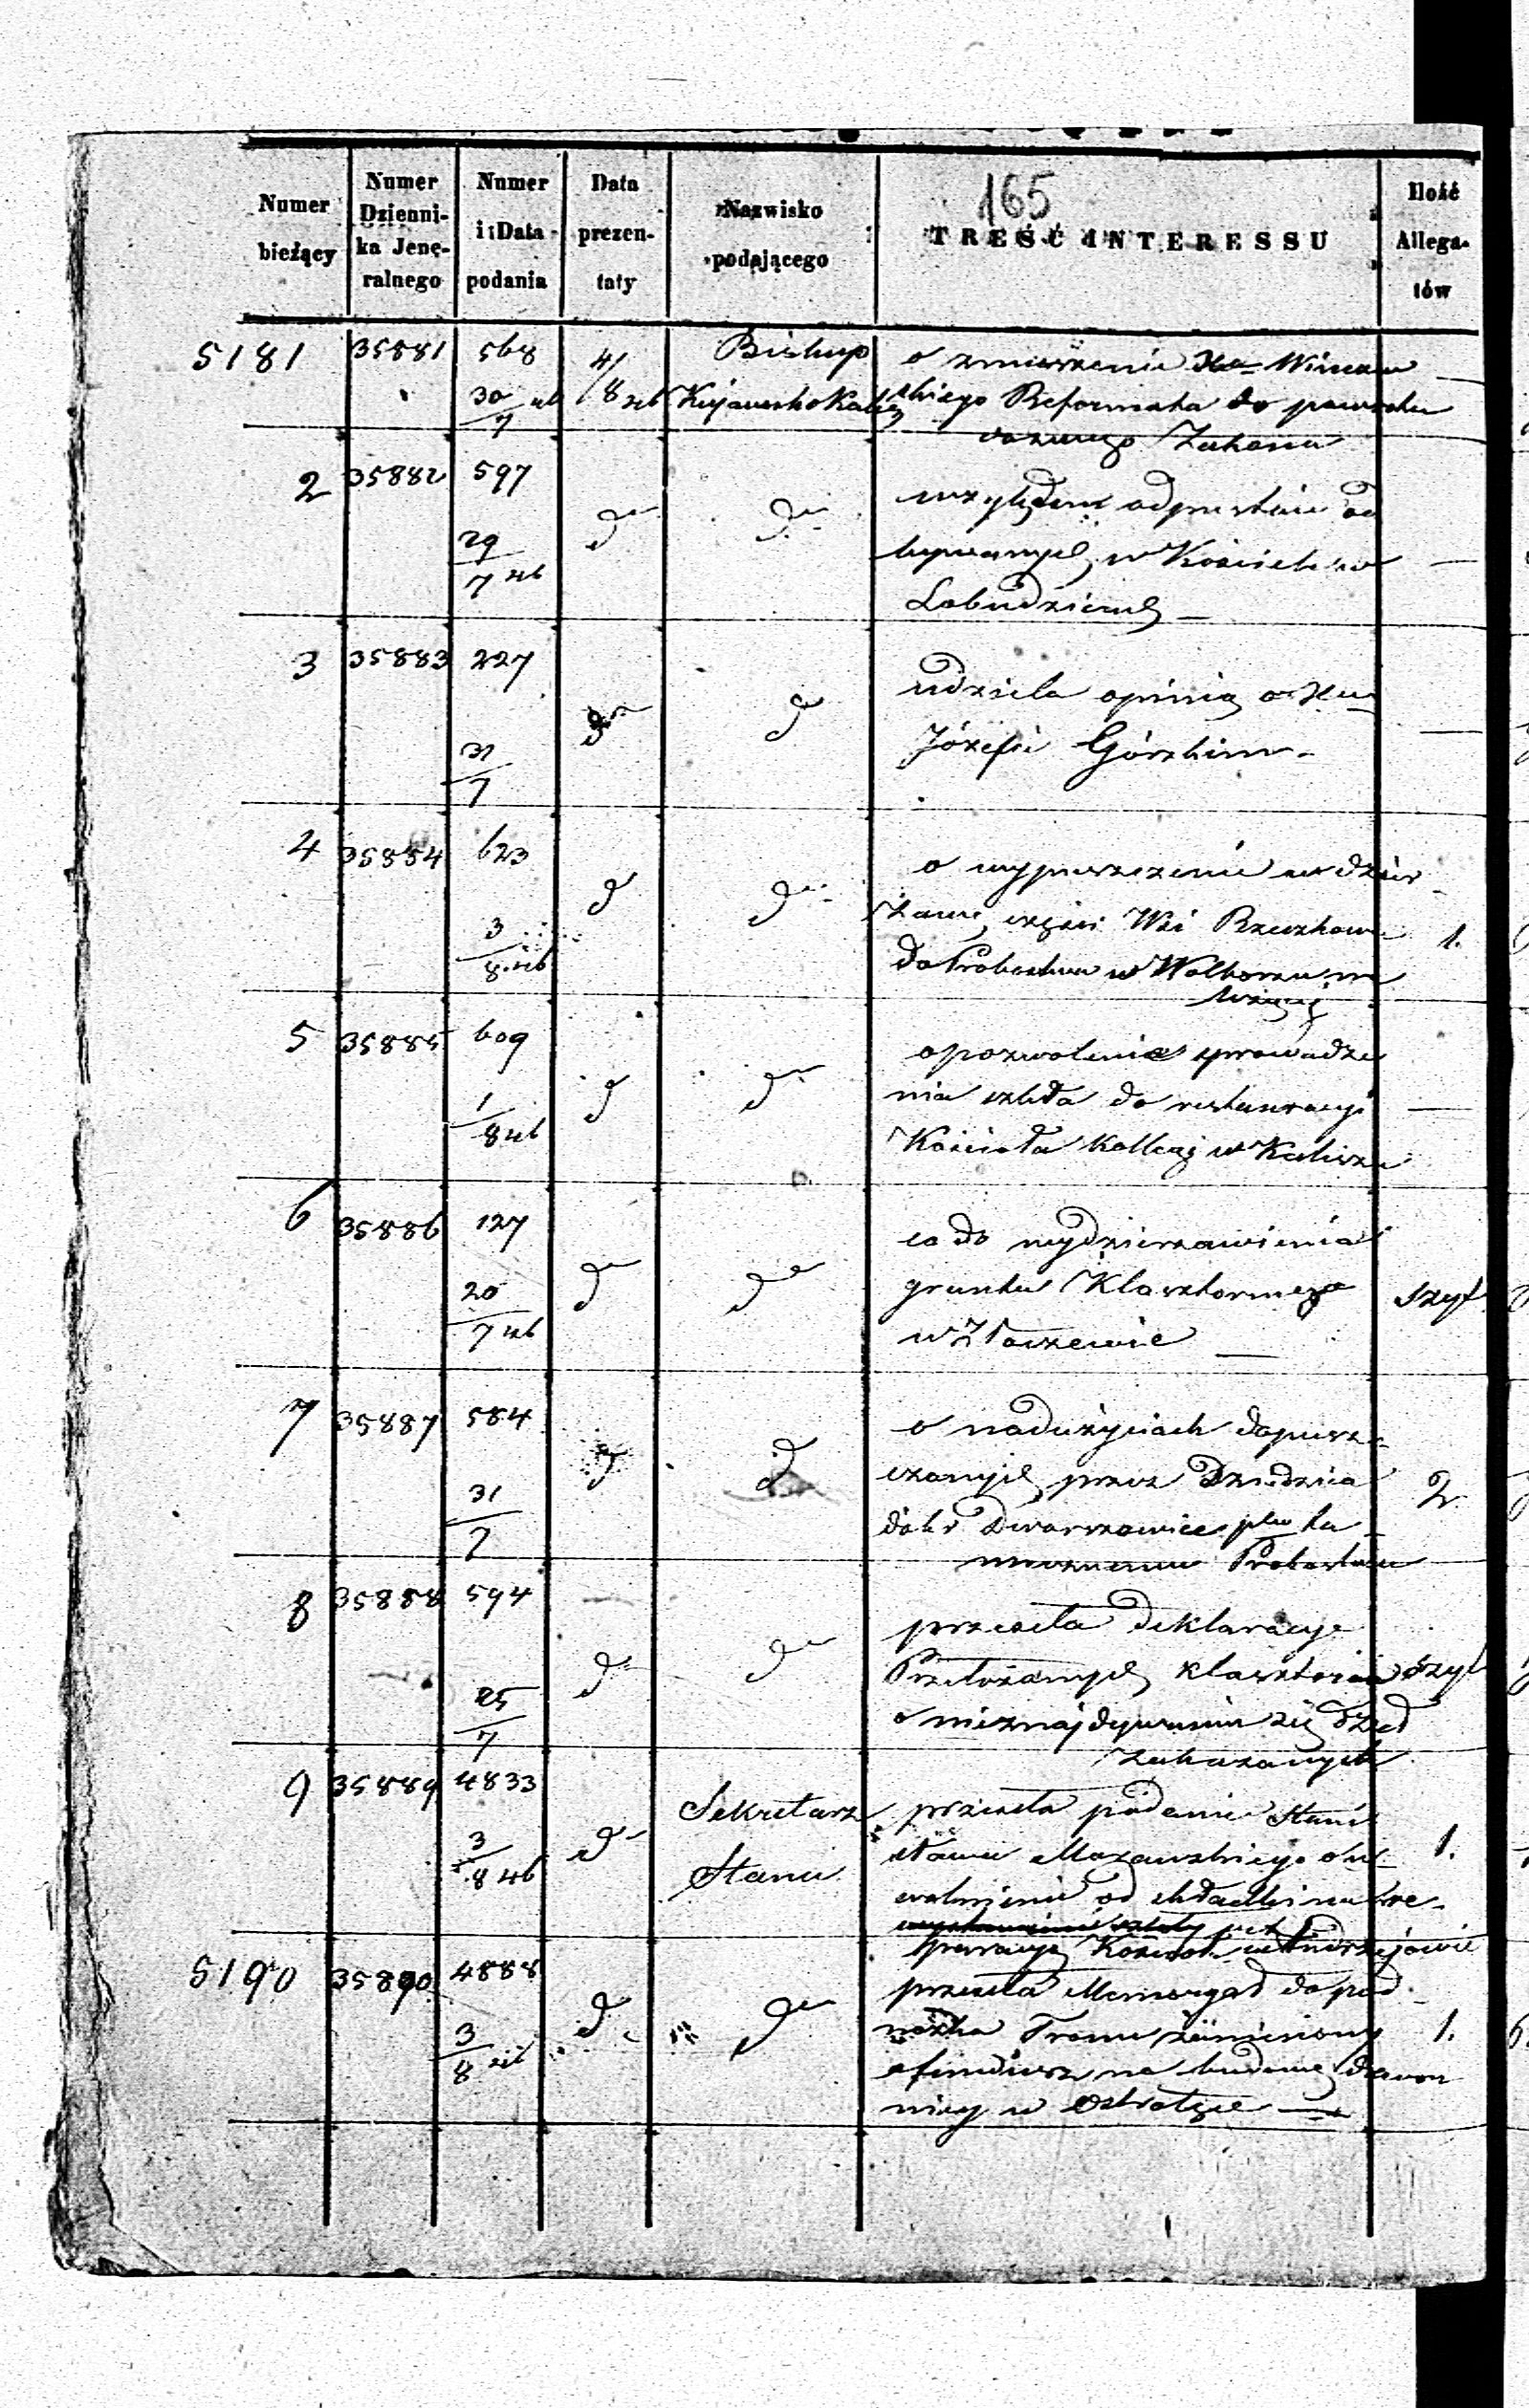 165
Numer bieżący
Numer Dzienni- ka Jene- ralnego
Numer i Data podania
Data prezen- taty
Nazwisko podającego
TREŚĆ INTERESSU
Ilość Allega- tów
5181 35881 568 30/7 4/8 Biskup
Kujawsko Kalis
o zmuszenie Xa
skiego Reformata do powrotu
Zakonu
2 35882 597 29/7 do do
względem odpustów od
bywanych w Kościele w
Łobudzicach
3 35883 227 31/7 do do
udziela opinią o Xu
Józefie Górskim
4 35884 623 3/8 do do
o wypuszczenie w dzier
żawę części Wsi
do Probostwa w Wolborzu na
leżącej
1.
5 35885 609 1/8 do do
o pozwolenie sprowadze
nia szkła do restauracyi
Kościoła Kolleg w Kaliszu
6 35886 127 20/7 do do
co do wydzierżawienia
gruntu Klasztornego
w Złoczewie
szyt
7 35887 584 31/7 do do
o nadużyciach dopusz
czanych przez Dziedzica
dóbr Dworszowice pko ta
mecznemu Probostwu
2
8 35888 594 25/7 do do
przesyła deklaracye
Przełożonych klasztorów
o nieznajdywaniu się
zakazanych
szyt
9 35889 4833 3/8 do
Sekretarz
Stanu
przesyła podanie Stani
sława Mazowskiego o u
wolnienie od składki na re-
peracyę Kościoła w Andrzejowie
1.
5190 35890 4888 3/8 do do
przesyła Memoryał do pod
nóżka Tronu zaniesiony
o fundusz na budowę dzwon
nicy w
1.